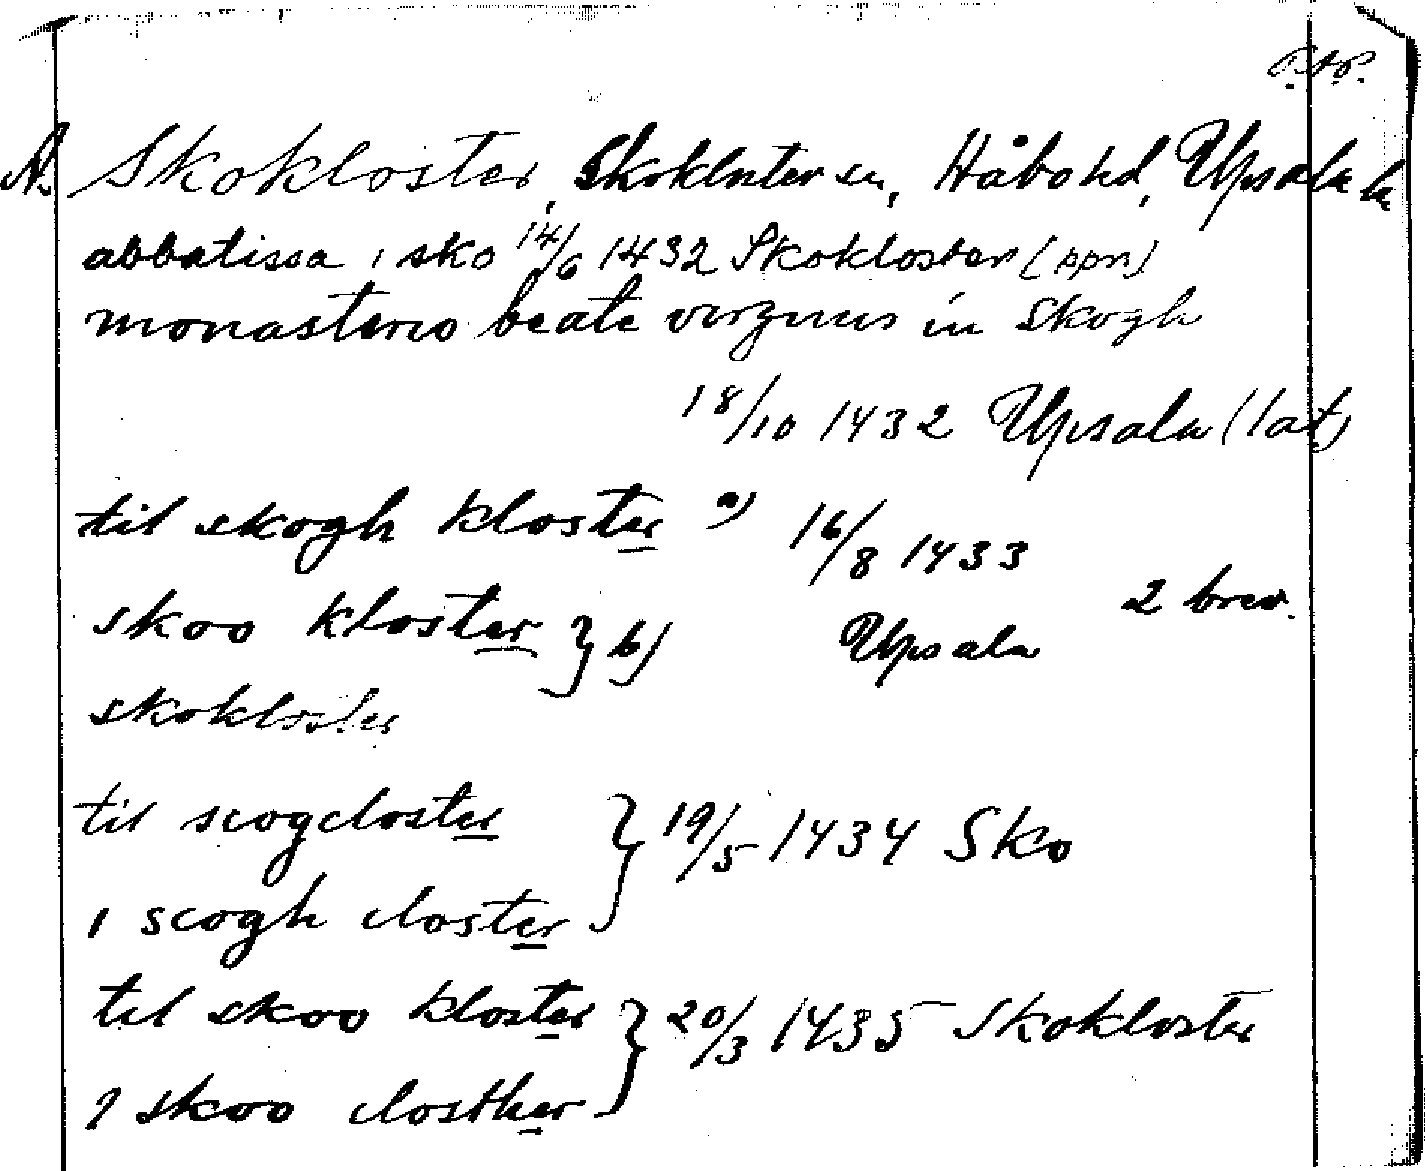 A. Skokloster, Skokloster sn, Håbo hd, Upsala l.
abbatissa i sko 14/6 1432 Skokloster (ppr)
monasterio beate virginis in Skogh
18/10 1432 Upsala (lat)
til skogh kloster a) 16/8 1433
skoo kloster } b) Upsala 2 brev.
skokloster
til scogcloster } 19/5 1434 Sko
i scogh closter
til skoo kloster } 20/3 1435 Skokloster
i skoo closther